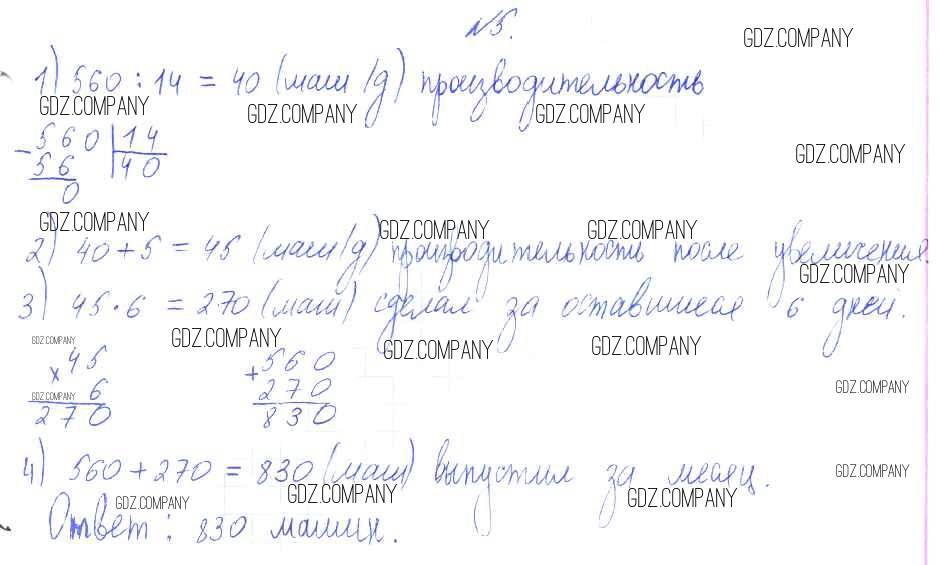 №5.
GDZ.COMPANY
1) 560 : 14 = 40 (маш/д) производительность
GDZ.COMPANY GDZ.COMPANY GDZ.COMPANY
- 560 | 14
56 | 40
GDZ.COMPANY
0
GDZ.COMPANY GDZ.COMPANY GDZ.COMPANY
2) 40 + 5 = 45 (маш/д) производительность после увеличения.
GDZ.COMPANY
3) 45 · 6 = 270 (маш) сделал за оставшиеся 6 дней.
GDZ.COMPANY GDZ.COMPANY GDZ.COMPANY GDZ.COMPANY
× 45 + 560
GDZ.COMPANY 6 270 GDZ.COMPANY
270 830
4) 560 + 270 = 830 (маш) выпустил за месяц.
GDZ.COMPANY
GDZ.COMPANY GDZ.COMPANY GDZ.COMPANY
Ответ : 830 машин.